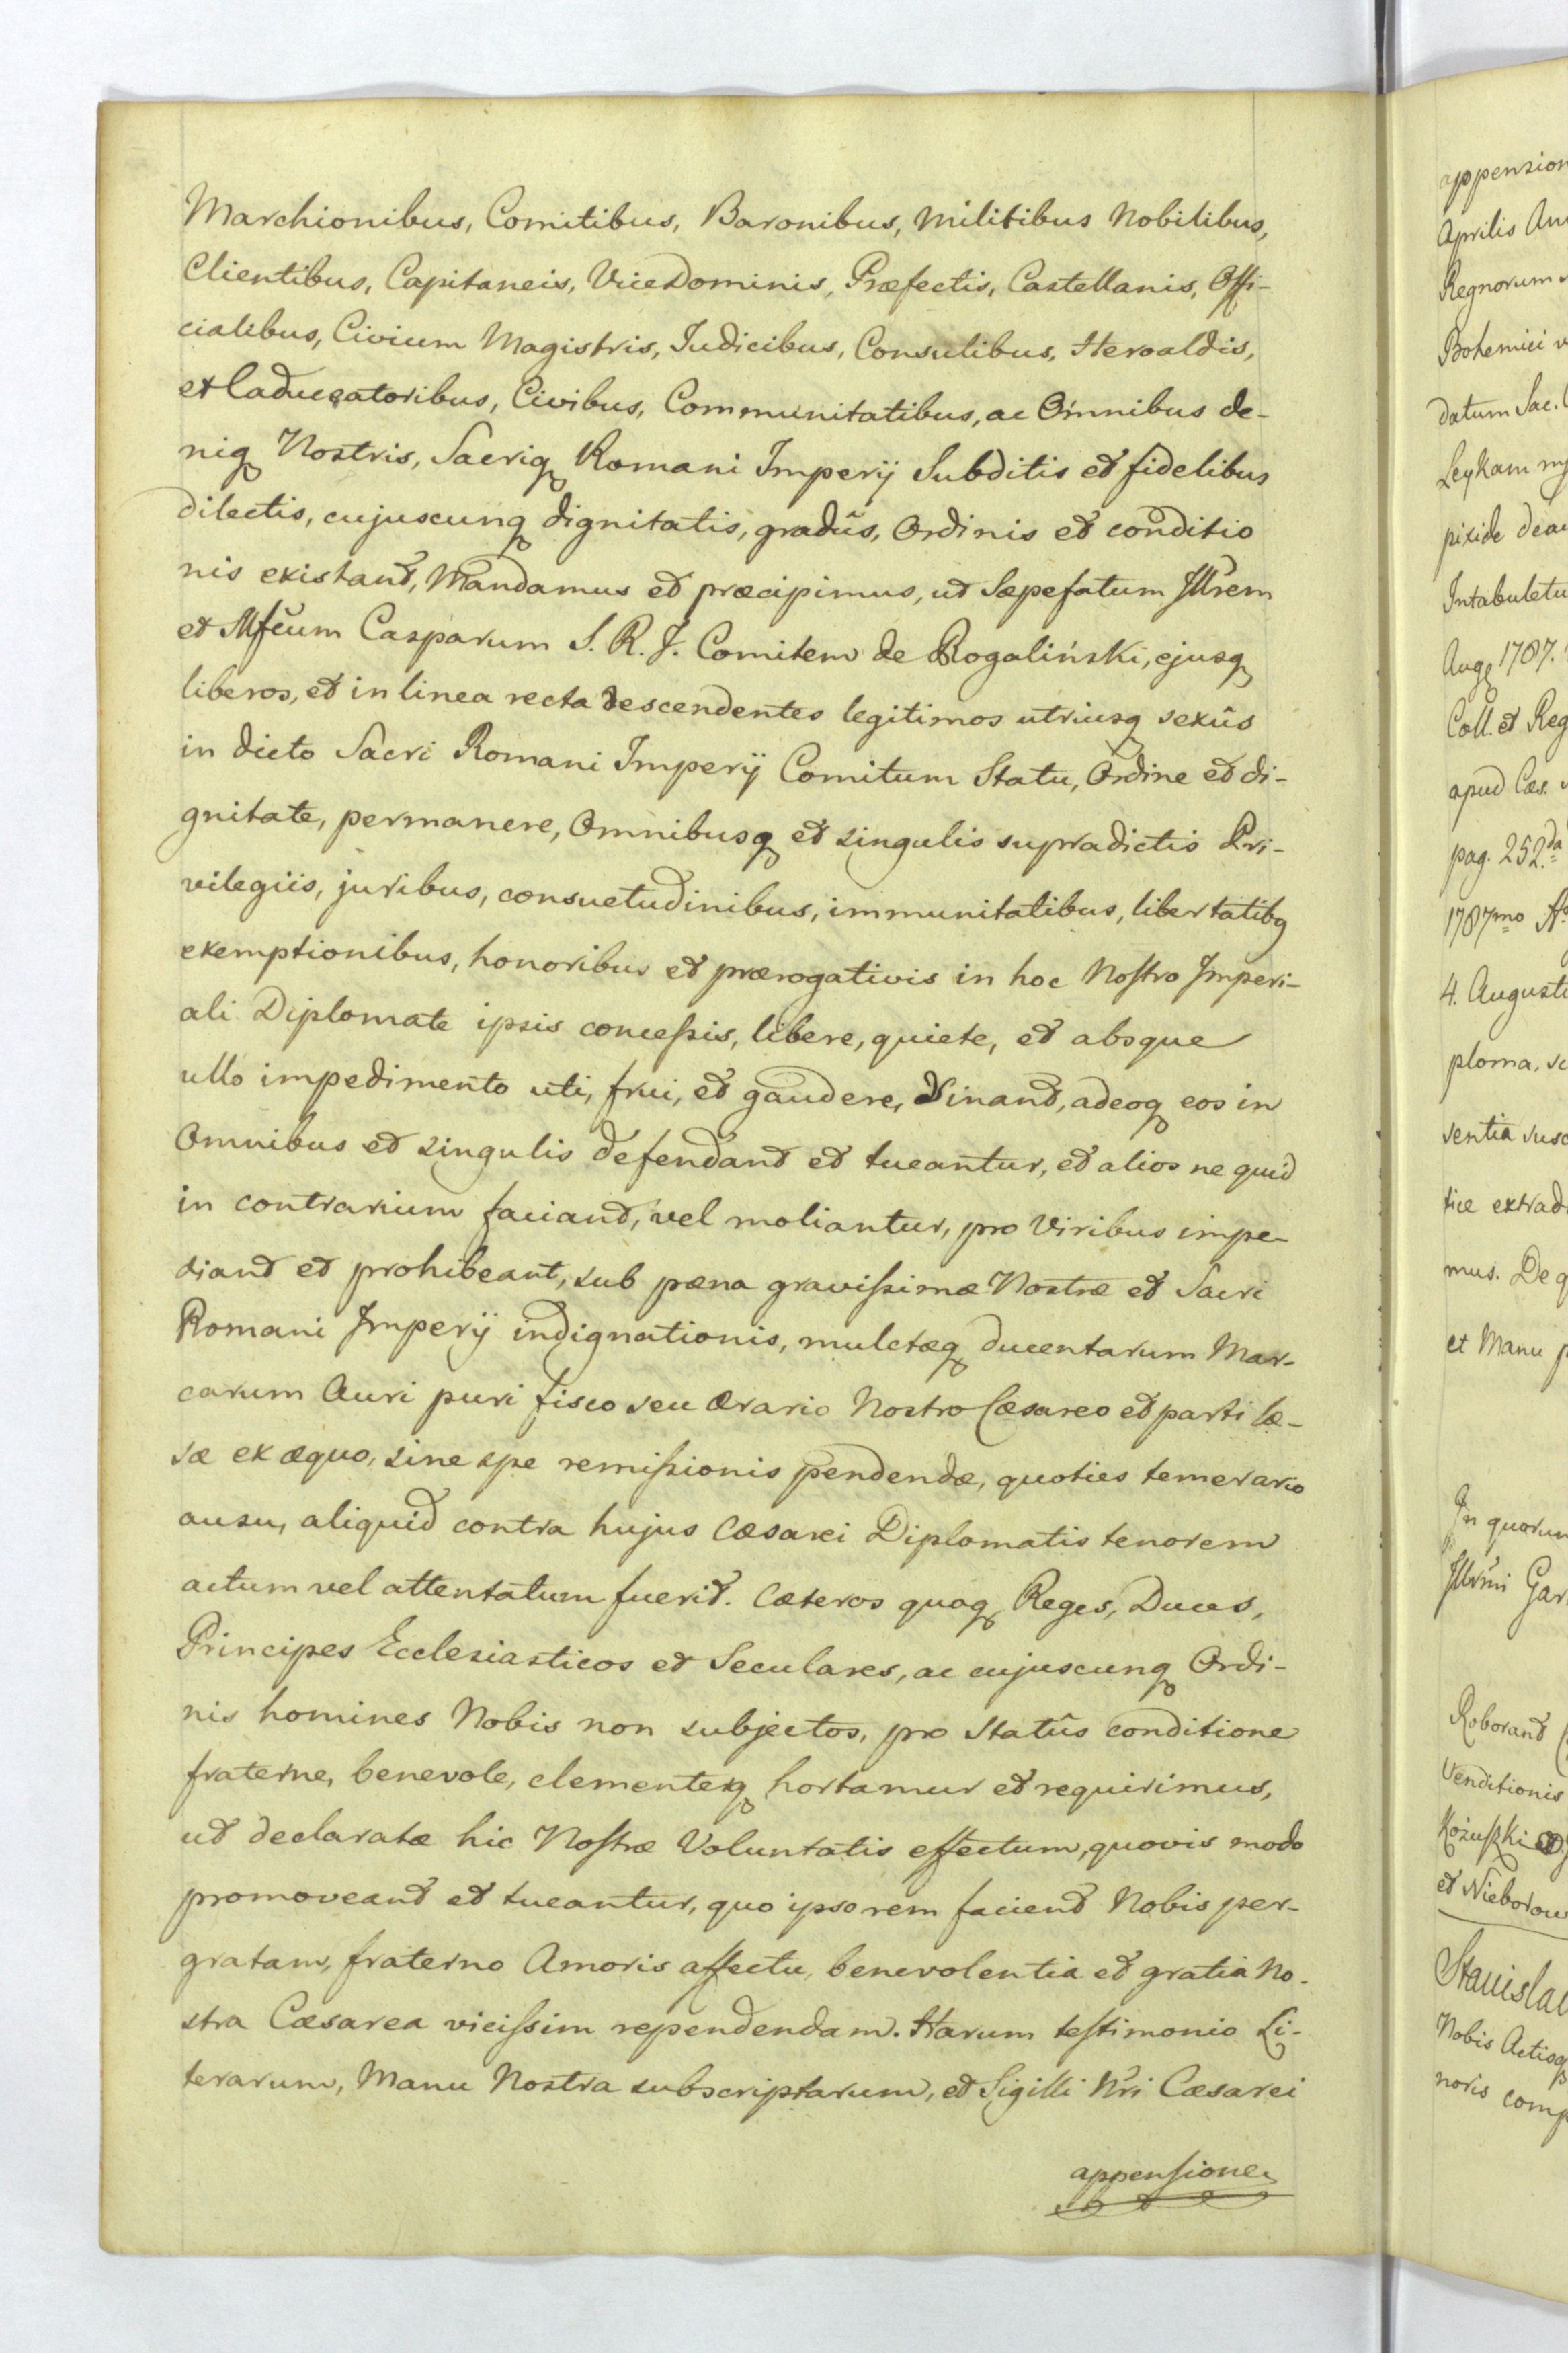 Marchionibus, Comitibus, Baronibus, Militibus Nobilibus,
Clientibus, Capitaneis, ViceDominis, Præfectis, Castellanis, Offi-
cialibus, Civium Magistris, Judicibus, Consulibus, Heroaldis,
et Caduceatoribus, Civibus, Communitatibus, ac Omnibus de-
niq Nostris, Sacriq Romani Imperij Subditis et fidelibus
dilectis, cujuscunq dignitatis, gradûs, Ordinis et conditio
nis existant, Mandamus et præcipimus, ut Sæpefatum Jllrem
et Mfcum Casparum S. R. J. Comitem de Rogaliński, ejusq
liberos, et in linea recta descendentes legitimos utriusq sexûs
in dicto Sacri Romani Imperij Comitum Statu, Ordine et di-
gnitate, permanere, Omnibusq et singulis supradictis Pri-
vilegiis, juribus, consuetudinibus, immunitatibus, libertatibq
exemptionibus, honoribus et prærogativis in hoc Nostro Imperi-
ali Diplomate ipsis concessis, libere, quiete, et absque
ullo impedimento uti, frui, et gaudere, Sinant, adeoq eos in
Omnibus et singulis defendant et tueantur, et alios ne quid
in contrarium faciant, vel moliantur, pro Viribus impe-
diant et prohibeant, sub pæna gravissimæ Nostræ et Sacri
Romani Imperij indignationis, mulctæq ducentarum Mar-
carum Auri puri fisco seu Ærario Nostro Cæsareo et parti læ-
sæ ex æquo, sine spe remissionis pendendæ, quoties temerario
ausu, aliquid contra hujus Cæsarei Diplomatis tenorem
actum vel attentatum fuerit. Cæteros quoq Reges, Duces,
Principes Ecclesiasticos et Seculares, ac cujuscunq Ordi-
nis homines Nobis non subjectos, pro Statûs conditione
fraterne, benevole, clementerq hortamur et requirimus,
ut declaratæ hic Nostræ Voluntatis effectum, quovis modo
promoveant et tueantur, quo ipso rem facient Nobis per-
gratam, fraterno Amoris affectu, benevolentia et gratia No-
stra Cæsarea vicissim rependendam. Harum testimonio Li-
terarum, Manu Nostra subscriptarum, et Sigilli Nri Cæsarei
appensione
appension
Aprilis
Regnorum
Bohemici
datum Sac.
Leykam
pixide
Aug 1787.
Coll. et Reg
apud Cæs.
pag. 252.da
1787mo
4. Augusti
ploma,
sentia
tice extrad
mus. De
et Manu
In quorum
Roborand
Venditionis
et
Nobis Actisq
noris comp